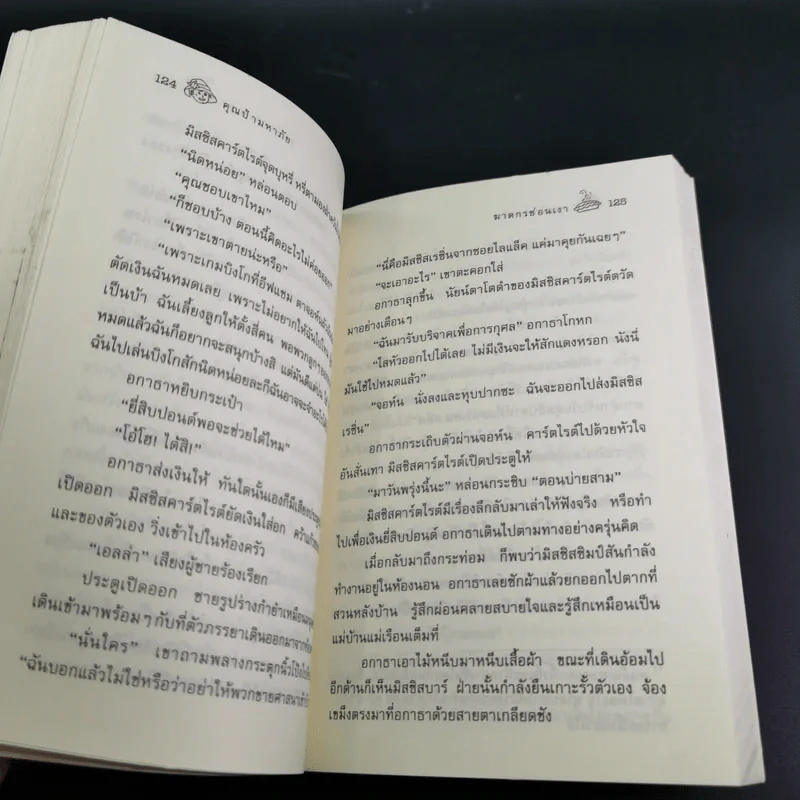 124
คุณป้ามหาภัย
มิสซิสคาร์ตไรต์จุดบุหรี่ หรี่ตามอง
“นิดหน่อย” หล่อนตอบ
“คุณชอบเขาไหม”
“ก็ชอบบ้าง ตอนนี้คิดอะไรไม่ค่อยออก”
“เพราะเขาตายน่ะหรือ”
“เพราะเกมบิงโกที่อีฟแชม ตาจอห์น
ตัดเงินฉันหมดเลย เพราะไม่อยากให้ฉันไป
เป็นบ้า ฉันเลี้ยงลูกให้ตั้งสี่คน พอพวกลูกๆ
หมดแล้วฉันก็อยากจะสนุกบ้างสิ แต่
ฉันไปเล่นบิงโกสักนิดหน่อยละก็ฉันอาจจะ
อกาธาหยิบกระเป๋า
“ยี่สิบปอนด์พอจะช่วยได้ไหม”
“โอ้โฮ! ได้สิ!”
อกาธาส่งเงินให้ ทันใดนั้นเองก็มีเสียงประตู
เปิดออก มิสซิสคาร์ตไรต์ยัดเงินใส่อก คว้าแก้ว
และของตัวเอง วิ่งเข้าไปในห้องครัว
“เอลล่า” เสียงผู้ชายร้องเรียก
ประตูเปิดออก ชายรูปร่างกำยำเหมือน
เดินเข้ามาพร้อมๆ กับที่ตัวภรรยาเดินออกมาจาก
“นั่นใคร” เขาถามพลางกระตุกนิ้วโป้ง
“ฉันบอกแล้วไม่ใช่หรือว่าอย่าให้พวกขายศาสนา
ฆาตกรซ่อนเงา
125
“นี่คือมิสซิสเรซินจากซอยไลแล็ค แค่มาคุยกันเฉยๆ”
“จะเอาอะไร” เขาตะคอกใส่
อกาธาลุกขึ้น นัยน์ตาโตดำของมิสซิสคาร์ตไรต์ตวัด
มาอย่างเตือนๆ
“ฉันมารับบริจาคเพื่อการกุศล” อกาธาโกหก
“ไสหัวออกไปได้เลย ไม่มีเงินจะให้สักแดงหรอก นังนี่
มันใช้ไปหมดแล้ว”
“จอห์น นั่งลงและหุบปากซะ ฉันจะออกไปส่งมิสซิส
เรซิน”
อกาธากระเถิบตัวผ่านจอห์น คาร์ตไรต์ไปด้วยหัวใจ
อันสั่นเทา มิสซิสคาร์ตไรต์เปิดประตูให้
“มาวันพรุ่งนี้นะ” หล่อนกระซิบ “ตอนบ่ายสาม”
มิสซิสคาร์ตไรต์มีเรื่องลึกลับมาเล่าให้ฟังจริง หรือทำ
ไปเพื่อเงินยี่สิบปอนด์ อกาธาเดินไปตามทางอย่างครุ่นคิด
เมื่อกลับมาถึงกระท่อม ก็พบว่ามิสซิสซิมป์สันกำลัง
ทำงานอยู่ในห้องนอน อกาธาเลยซักผ้าแล้วยกออกไปตากที่
สวนหลังบ้าน รู้สึกผ่อนคลายสบายใจและรู้สึกเหมือนเป็น
แม่บ้านแม่เรือนเต็มที่
อกาธาเอาไม้หนีบมาหนีบเสื้อผ้า ขณะที่เดินอ้อมไป
อีกด้านก็เห็นมิสซิสบาร์ ฝ่ายนั้นกำลังยืนเกาะรั้วตัวเอง จ้อง
เขม็งตรงมาที่อกาธาด้วยสายตาเกลียดชัง